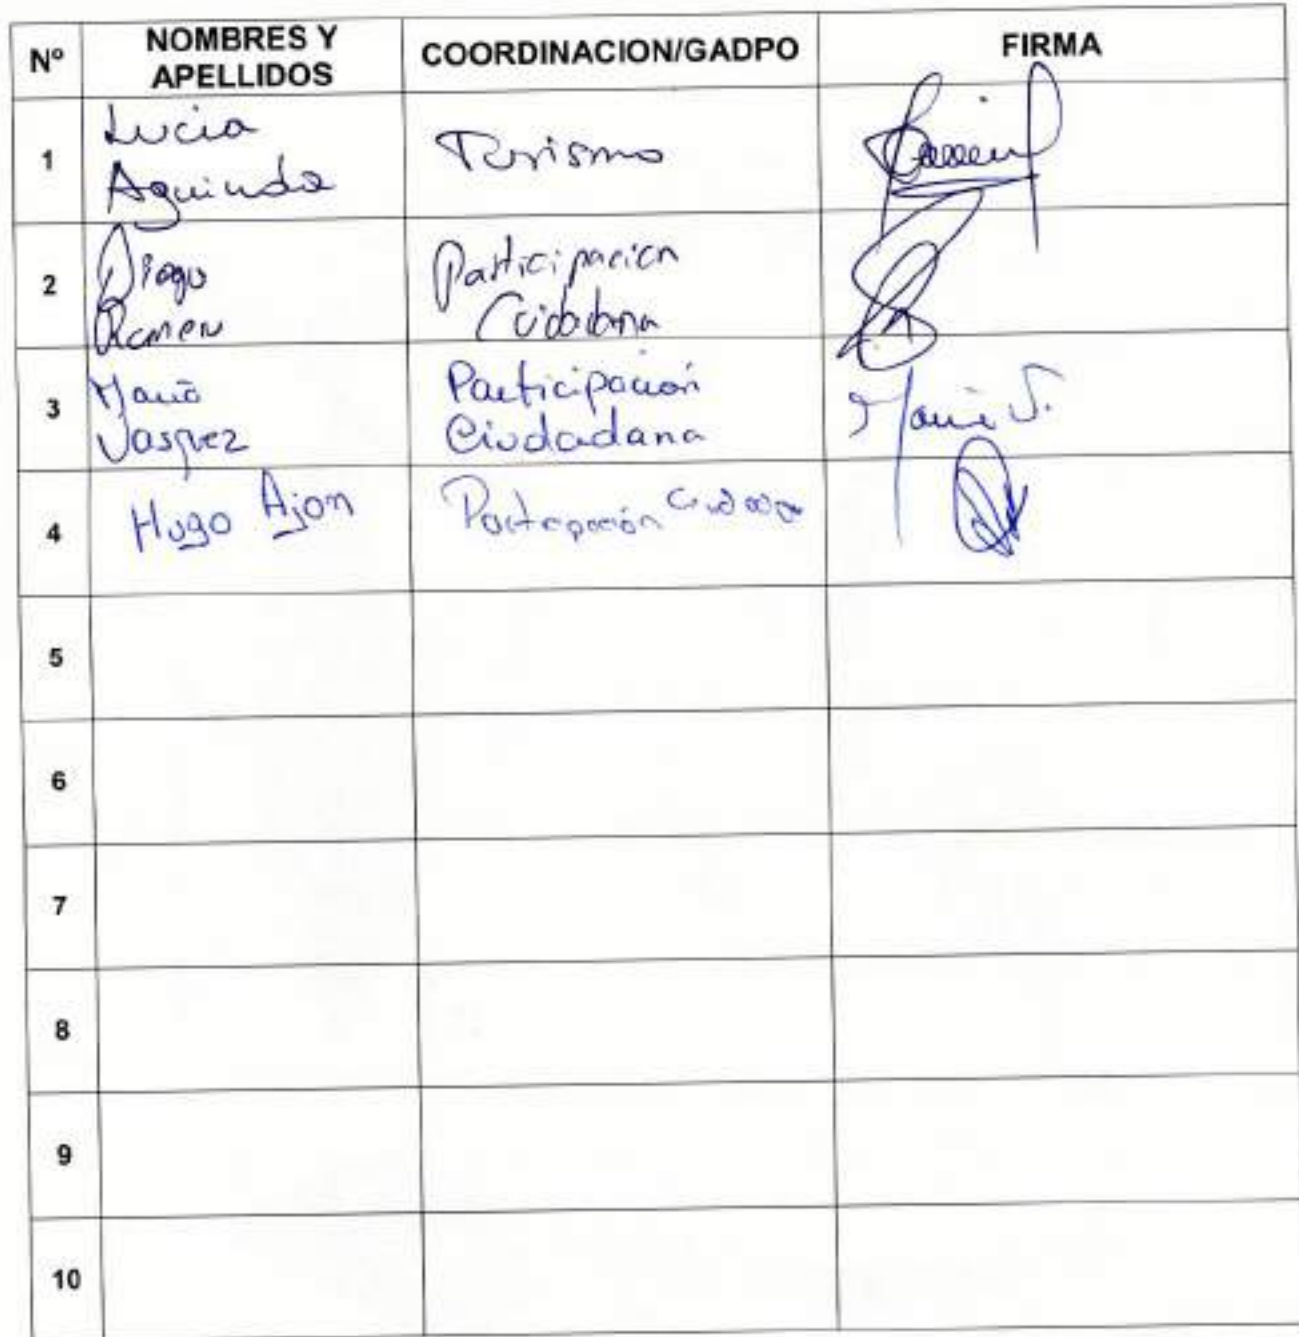 Nº NOMBRES Y APELLIDOS COORDINACION/GADPO FIRMA
1 Lucia Aguinda Turismo
2 Diego Participacion Ciudadana
3 Maria Vasquez Participación Ciudadana Maria V.
4 Hugo Ajon Participación Ciudadana
5
6
7
8
9
10